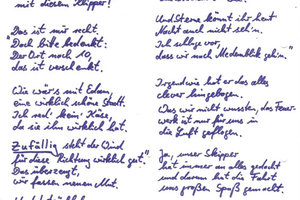 mit diesem Skipper!
"Das ist mir recht.
Doch bitte bedenkt:
Der Ort nach 10,
das ist verschenkt.
Wie wär's mit Edam,
eine wirklich schöne Stadt.
Ich red' kein' Käse,
da sie ihn wirklich hat.
Zufällig steht der Wind
für diese Richtung wirklich gut."
Das überzeugt,
wir fassen neuen Mut.
Und Sterne könnt ihr heut
Nacht auch nicht seh'n.
Ich schlage vor,
dass wir nach Medemblik geh'n."
Irgendwie hat er das alles
clever hingebogen.
Was wir nicht wussten, das Feuer-
werk ist nur für uns in
die Luft geflogen.
Ja, unser Skipper
hat immer an alles gedacht
und darum hat die Fahrt
uns großen Spaß gemacht.